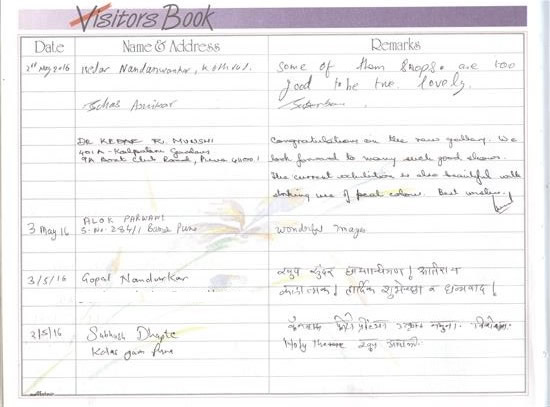 Visitors Book
Date Name & Address Remarks
2nd May 2016 Kedar Nandanwankar, Kothrud. Some of them snaps are too
good to be true. lovely.
DR KEDAR R. MUNSHI Congratulations on the new gallery. We
401A - Kalpataru Gardens look forward to many such good shows.
9A Boat Club Road, Pune 411001 The current exhibition is also beautiful with
striking use of colour. Best wishes.
3 May 16 ALOK PARWANI Wonderful Images
S. No. 284/1 Baner Pune
3/5/16 Gopal Nandurkar खुपच सुंदर छायाचित्रण!
कलात्मक! हार्दिक शुभेच्छा व धन्यवाद!
3/5/16 Subhash Dhapte
Pune Holy theme खुप आवडली.